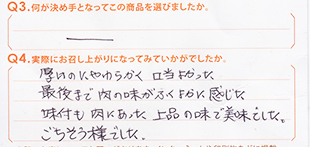 Q3.何が決め手となってこの商品を選びましたか。
Q4.実際にお召し上がりになってみていかがでしたか。
厚いのにやわらかく 口当よかった
最後まで肉の味がふくよかに感じた
味付も肉にあった 上品の味で美味でした。
ごちそう様でした。